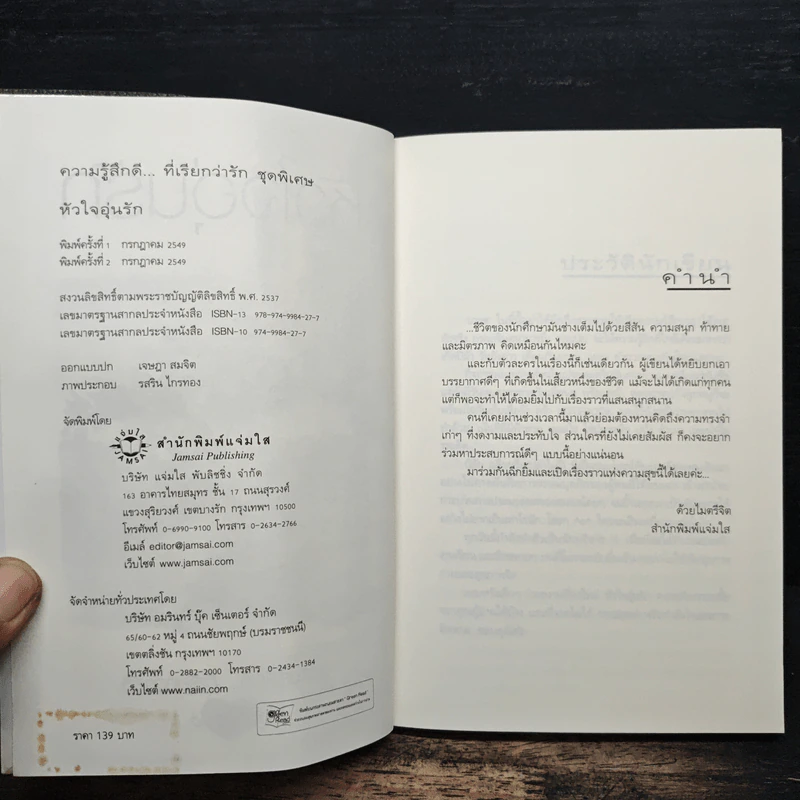 ความรู้สึกดี... ที่เรียกว่ารัก ชุดพิเศษ
หัวใจอุ่นรัก
พิมพ์ครั้งที่ 1 กรกฎาคม 2549
พิมพ์ครั้งที่ 2 กรกฎาคม 2549
สงวนลิขสิทธิ์ตามพระราชบัญญัติลิขสิทธิ์ พ.ศ. 2537
เลขมาตรฐานสากลประจำหนังสือ ISBN-13 978-974-9984-27-7
เลขมาตรฐานสากลประจำหนังสือ ISBN-10 974-9984-27-7
ออกแบบปก เจษฎา สมจิต
ภาพประกอบ รสริน ไกรทอง
จัดพิมพ์โดย
แจ่มใส
JAMSAI
สำนักพิมพ์แจ่มใส
Jamsai Publishing
บริษัท แจ่มใส พับลิชชิ่ง จำกัด
163 อาคารไทยสมุทร ชั้น 17 ถนนสุรวงศ์
แขวงสุริยวงศ์ เขตบางรัก กรุงเทพฯ 10500
โทรศัพท์ 0-6990-9100 โทรสาร 0-2634-2766
อีเมล์ editor@jamsai.com
เว็บไซต์ www.jamsai.com
จัดจำหน่ายทั่วประเทศโดย
บริษัท อมรินทร์ บุ๊ค เซ็นเตอร์ จำกัด
65/60-62 หมู่ 4 ถนนชัยพฤกษ์ (บรมราชชนนี)
เขตตลิ่งชัน กรุงเทพฯ 10170
โทรศัพท์ 0-2882-2000 โทรสาร 0-2434-1384
เว็บไซต์ www.naiin.com
Green Read
ราคา 139 บาท
คำนำ
...ชีวิตของนักศึกษามันช่างเต็มไปด้วยสีสัน ความสนุก ท้าทาย
และมิตรภาพ คิดเหมือนกันไหมคะ
และกับตัวละครในเรื่องนี้ก็เช่นเดียวกัน ผู้เขียนได้หยิบยกเอา
บรรยากาศดีๆ ที่เกิดขึ้นในเสี้ยวหนึ่งของชีวิต แม้จะไม่ได้เกิดแก่ทุกคน
แต่ก็พอจะทำให้ได้อมยิ้มไปกับเรื่องราวที่แสนสนุกสนาน
คนที่เคยผ่านช่วงเวลานี้มาแล้วย่อมต้องหวนคิดถึงความทรงจำ
เก่าๆ ที่งดงามและประทับใจ ส่วนใครที่ยังไม่เคยสัมผัส ก็คงจะอยาก
ร่วมหาประสบการณ์ดีๆ แบบนี้อย่างแน่นอน
มาร่วมกันฉีกยิ้มและเปิดเรื่องราวแห่งความสุขนี้ได้เลยค่ะ...
ด้วยไมตรีจิต
สำนักพิมพ์แจ่มใส